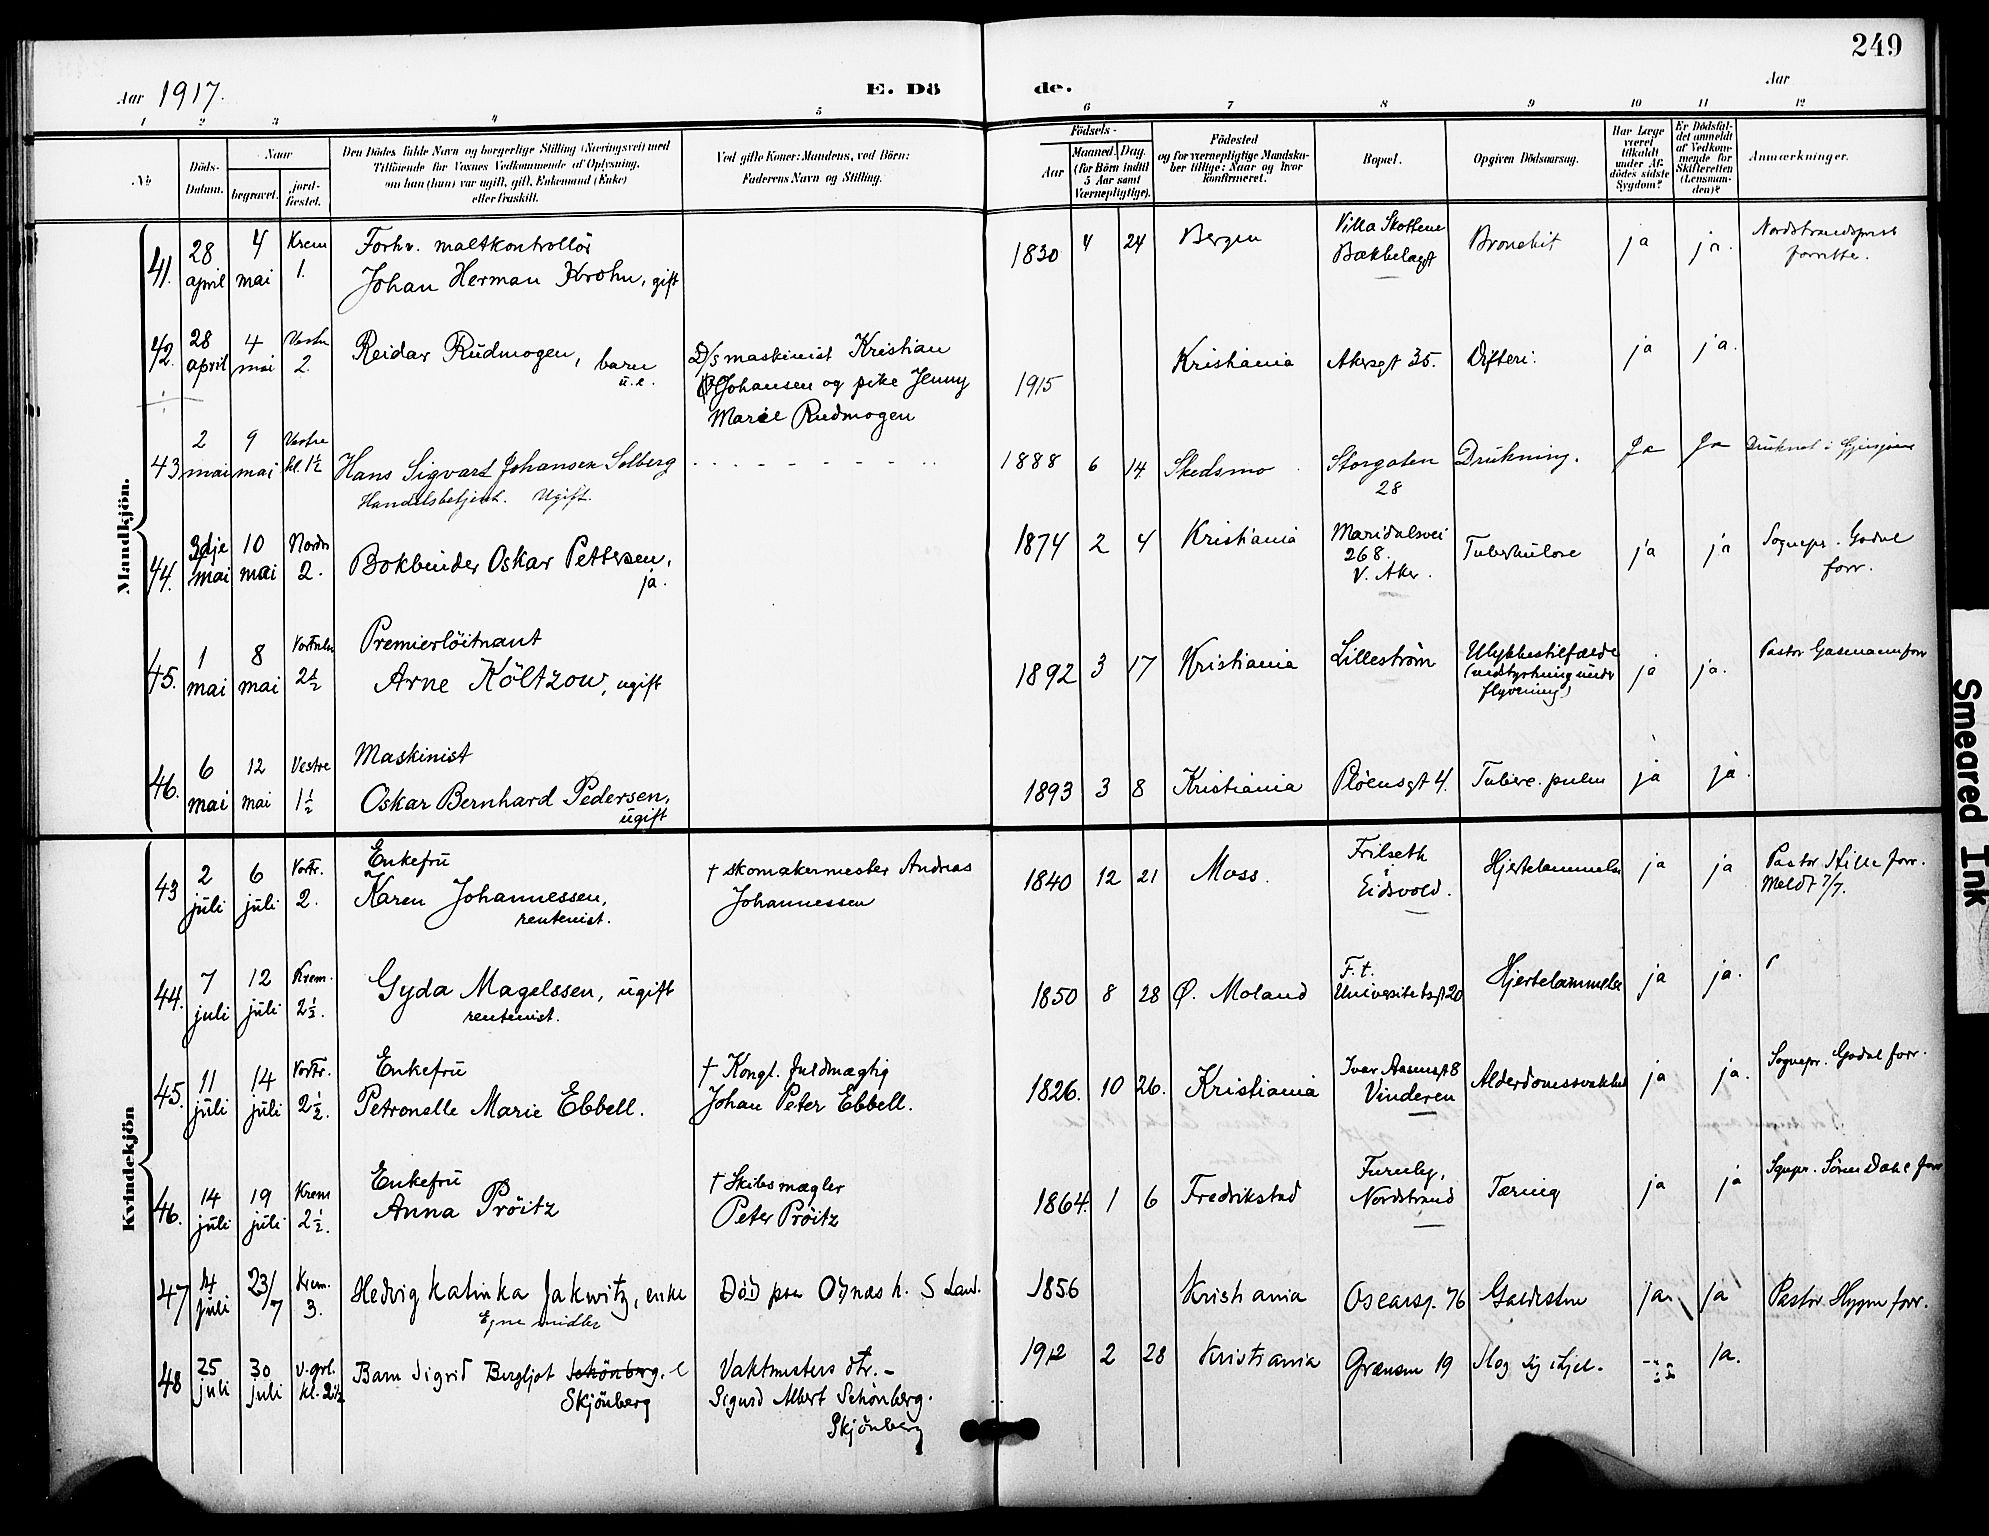 249
Aar 1917.
E. Dö
de.
Aar
1 2 3 4 5 6 7 8 9 10 11 12
No
Döds-
Datum.
Naar
begravet.
jord-
fæstet.
Den Dödes fulde Navn og borgerlige Stilling (Næringsvei) med
Tilföiende for Voxnes Vedkommende af Oplysning,
om han (hun) var ugift, gift, Enkemand (Enke)
eller fraskilt.
Ved gifte Koner: Mandens, ved Börn:
Faderens Navn og Stilling.
Födsels-
Aar
Maaned. Dag.
(for Börn indtil
5 Aar samt
Værnepligtige).
Födested
og for værnepligtige Mandska-
ber tillige: Naar og hvor
konfirmeret.
Bopæl.
Opgiven Dödsaarsag.
Har Læge
været
tilkaldt
under Af-
dödes sidste
Sygdom?
Er Dödsfal-
det anmeldt
af Vedkom-
mende for
Skifteretten
(Lensman-
den)?
Anmærkninger.
Mandkjön.
41. 28 april 4 mai Krem 1.
Forhv. maltkontrollör
Johan Herman Krohn, gift
1830 4 24 Bergen
Villa Skottene
Bækkelaget
Bronchit ja ja.
Nordstrandsprest
forrette.
42. 28 april 4 mai Vestre 2.
Reidar Rudmogen, barn
u.e.
D/s maskinist Kristian
Johansen og pike Jenny
Marie Rudmogen
1915 Kristiania Akersgt 35. Difteri. ja ja.
43 2 mai 9 mai Vestre kl. 1½
Hans Sigvart Johansen Solberg
Handelsbetjent. Ugift.
1888 6 14. Skedsmo
Storgaten
28
Drukning. Ja Ja
Druknet i Gjersjøen
44. 3dje mai 10 mai Nordre 2.
Bokbinder Oskar Pettersen,
ja.
1874 2 4 Kristiania
Maridalsvei
268.
V. Aker.
Tuberkulose ja ja
Sognepr. Godal
forr.
45. 1 mai 8 mai 2½
Premierlöitnant
Arne Költzow, ugift
1892 3 17 Kristiania Lilleström
Ulykkestilfælde
(nedstyrtning under
flyvning)
ja ja.
Pastor Gasmann forr
46. 6 mai 12 mai Vestre 1½
Maskinist
Oskar Bernhard Pedersen,
ugift
1893 3 8 Kristiania Plöensgt 4. Tuberc. pulm ja ja.
Kvindekjön
43 2 juli 6 juli Vor Fr. 2.
Enkefru
Karen Johannessen,
rentenist.
† skomakermester Andreas
Johannessen
1840 12 21 Moss.
Frilseth
i
Eidsvold.
Hjertelammelse ja ja
Pastor Hille forr.
Meldt 7/7.
44. 7 juli 12 juli Krem. 2½.
Gyda Magelssen, ugift
rentenist.
1850 8 28 Ø. Moland
F. t.
Universitetsgt 20
Hjertelammelse ja ja.
45. 11 juli 14 juli Vor Fr. 2½.
Enkefru
Petronelle Marie Ebbell.
† Kongl. fuldmægtig
Johan Peter Ebbell.
1826. 10 26. Kristiania
Ivar Aasensgt 8
Vinderen
Alderdomssvakhet ja ja.
Sognepr. Godal forr.
46. 14 juli 19 juli Krem 2½.
Enkefru
Anna Pröitz
† Skibsmægler
Peter Pröitz
1864. 1 6 Fredrikstad
Furuly,
Nordstrand
Tæring ja ja
Sgnpr. Sören Dahl forr
47 14 juli 23/7 Krem. 3.
Hedvig Katinka Jakwitz, enke
Egne midler
Död paa Odnæs h. S Land.
1856 Kristiania Oscarsg. 76 Galdesten ja ja
Pastor Hygen forr.
48 25 juli 30 juli V. grl. kl. 2½
Barn Sigrid Bergljot Schönberg. e
Skjönberg
Vaktmesters dtr. –
Sigurd Albert Schönberg.
Skjönberg
1912 2 28 Kristiania Grænsen 19 Slog sig ihjel. ja.
Smeared Ink